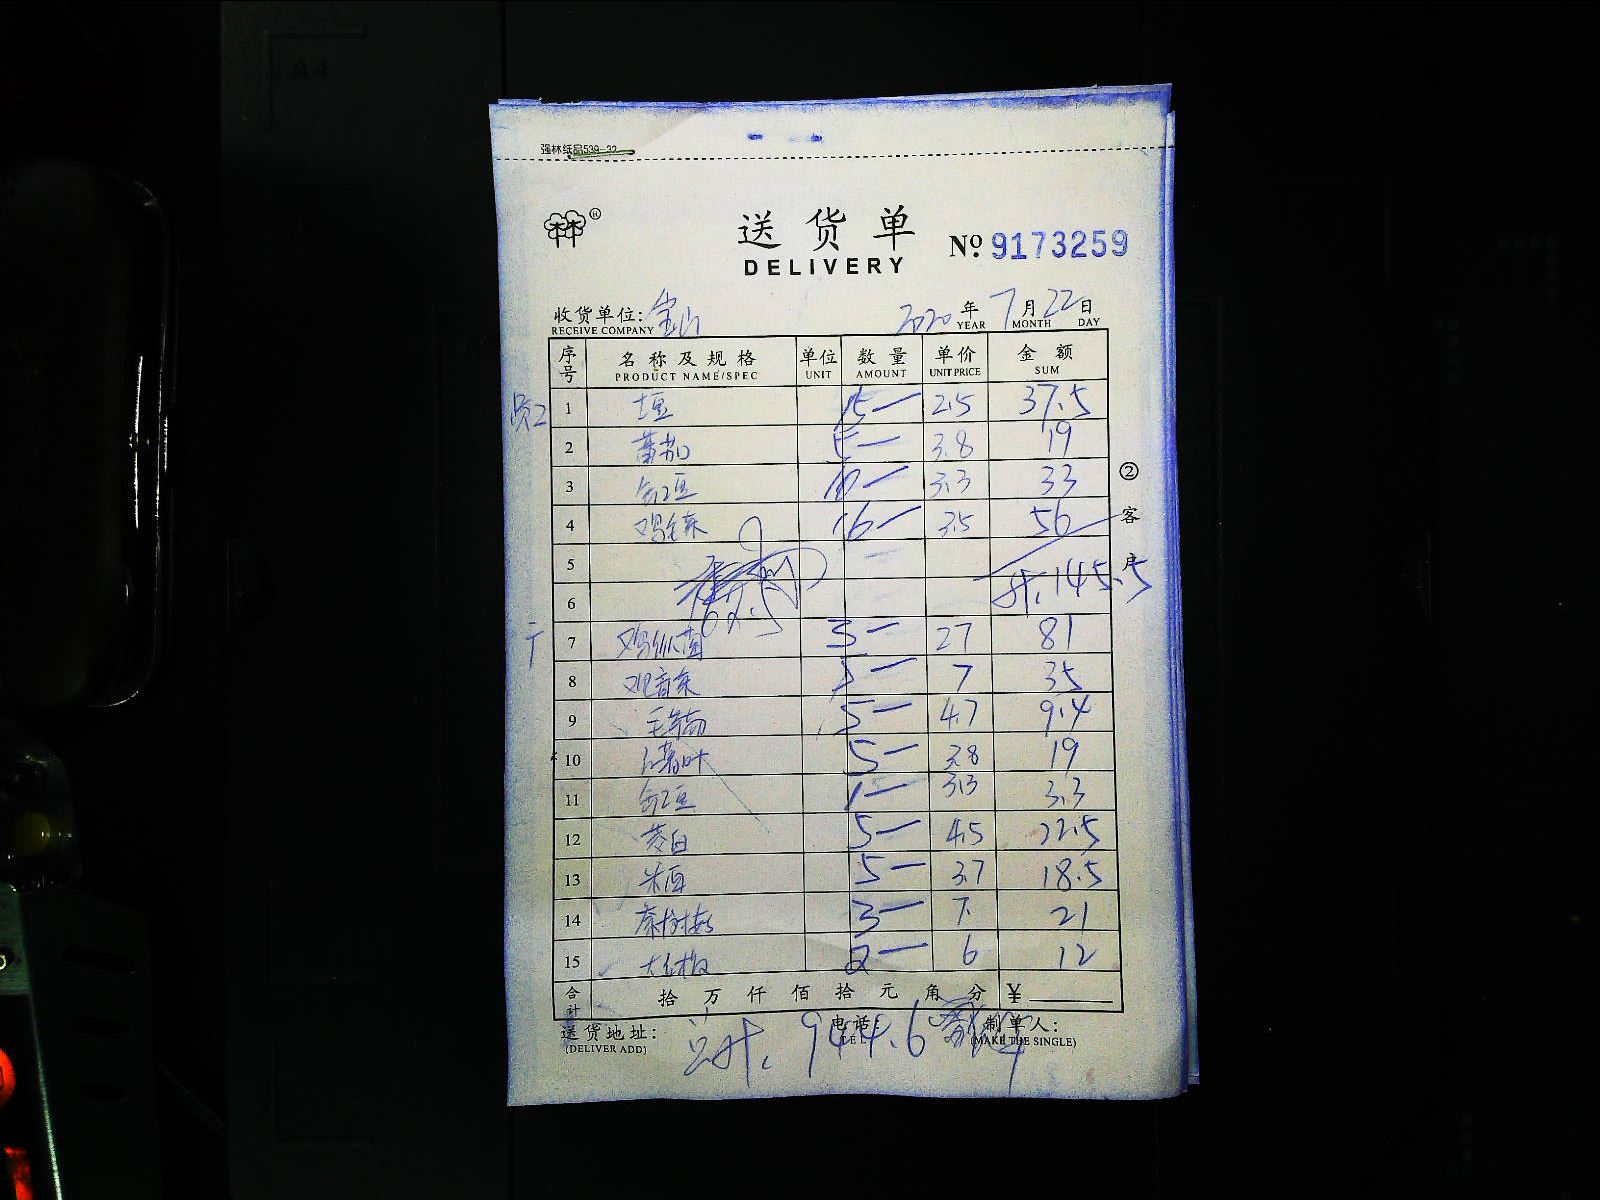 强林纸品539-32
送货单
DELIVERY
№ 9173259
收货单位: 宝山 2020年7月22日
RECEIVE COMPANY YEAR MONTH DAY
序号 名称及规格 单位 数量 单价 金额
PRODUCT NAME/SPEC UNIT AMOUNT UNIT PRICE SUM
员工 1 土豆 15— 2.5 37.5
2 蕃茄 5— 3.8 19
3 缸豆 10— 3.3 33
4 鸡毛菜 16— 3.5 56
5
6 计.145.5
7 鸡纵菌 3— 27 81
8 观音菜 5— 7 35
9 5— 4.7 9.4
10 叶 5— 3.8 19
11 缸豆 1— 3.3 3.3
12 茭白 5— 4.5 22.5
13 5— 3.7 18.5
14 3— 7. 21
15 2— 6 12
合计 拾万仟佰拾元角分 ¥
②客户
送货地址: 电话: 制单人:
(DELIVER ADD) TEL (MAKE THE SINGLE)
总计. 944.6